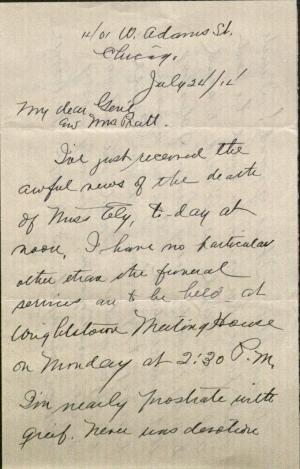 1401 W. Adams St.
Chicago,
July 24/14
My dear Genl
and Mrs Pratt.
I've just received the
awful news of the death
of Miss Ely, to-day at
noon, I have no particular
other than the funeral
services are to be held at
Wrightstown Meeting House
on Monday at 2:30 P.M,
I'm nearly prostrate with
grief. Never was devotion